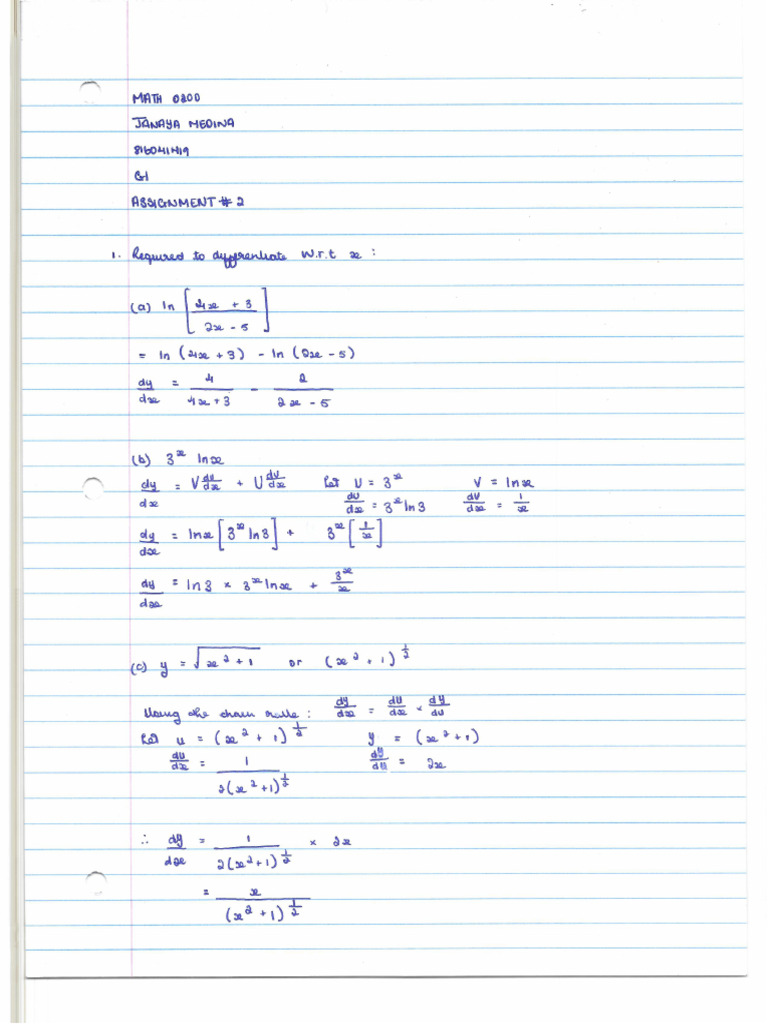 MATH 0200
JANAYA MEDINA
816041419
G1
ASSIGNMENT # 2
1. Required to differentiate w.r.t x :
(a) ln [ (4x + 3) / (2x - 5) ]
= ln (4x + 3) - ln (2x - 5)
dy/dx = 4/(4x + 3) - 2/(2x - 5)
(b) 3^x ln x
dy/dx = V du/dx + U dv/dx   Let U = 3^x   V = ln x
du/dx = 3^x ln 3   dv/dx = 1/x
dy/dx = ln x [ 3^x ln 3 ] + 3^x [ 1/x ]
dy/dx = ln 3 × 3^x ln x + 3^x/x
(c) y = √(x² + 1) or (x² + 1)^(1/2)
Using the chain rule : dy/dx = du/dx × dy/du
Let u = (x² + 1)^(1/2)   y = (x² + 1)
du/dx = 1/(2(x² + 1)^(1/2))   dy/du = 2x
∴ dy/dx = 1/(2(x² + 1)^(1/2)) × 2x
= x/((x² + 1)^(1/2))